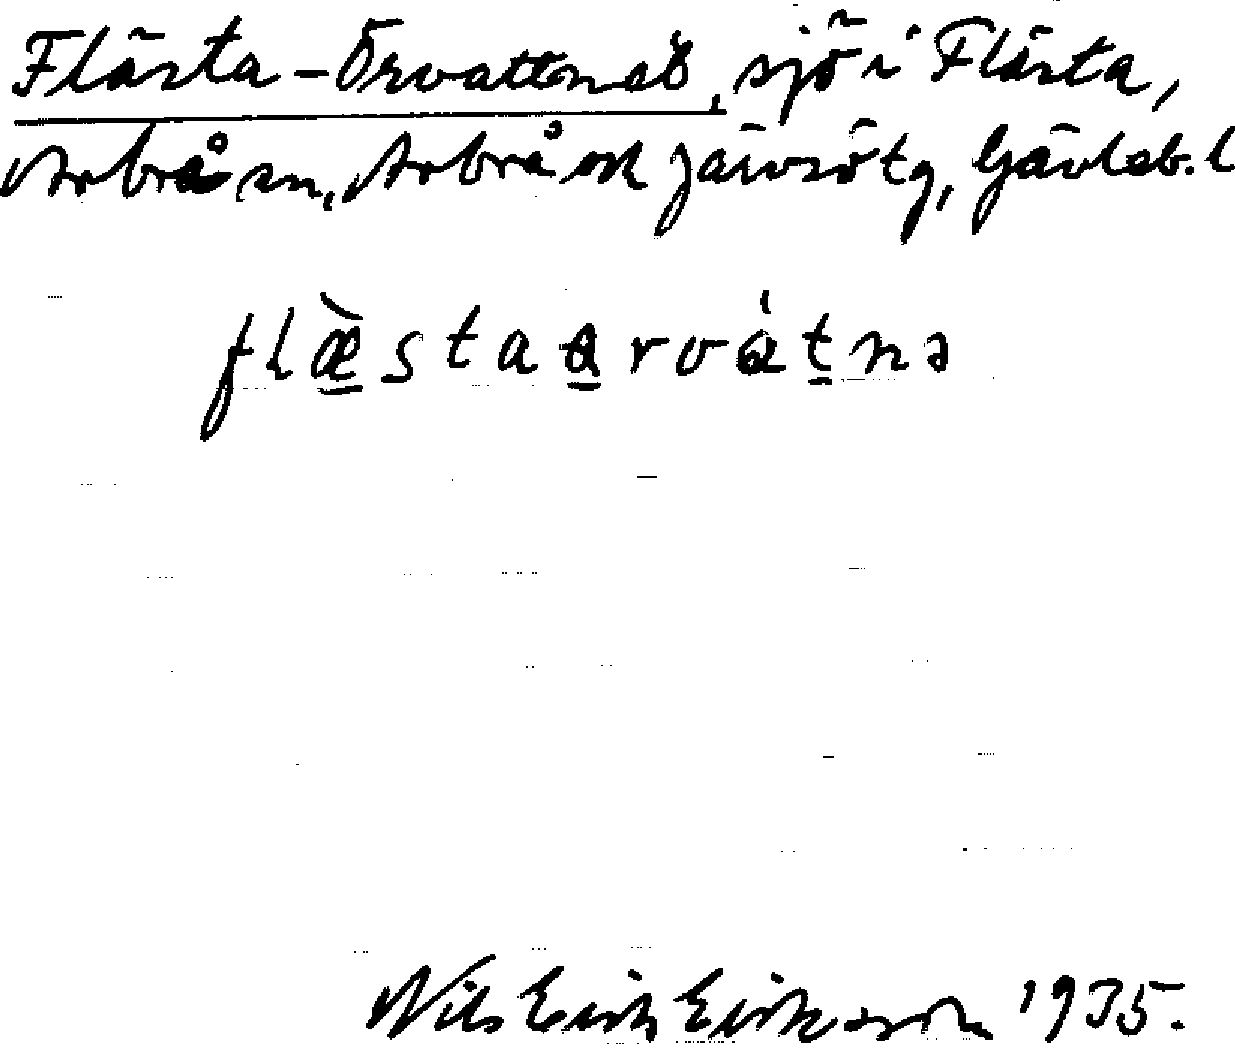 Flästa-Örvattnet, sjö i Flästa,
Arbrå sn, Arbrå och Järvsö tg, Gävleb. l
flæ̀staɑrvátnə
Nils Erik Eriksson 1935.